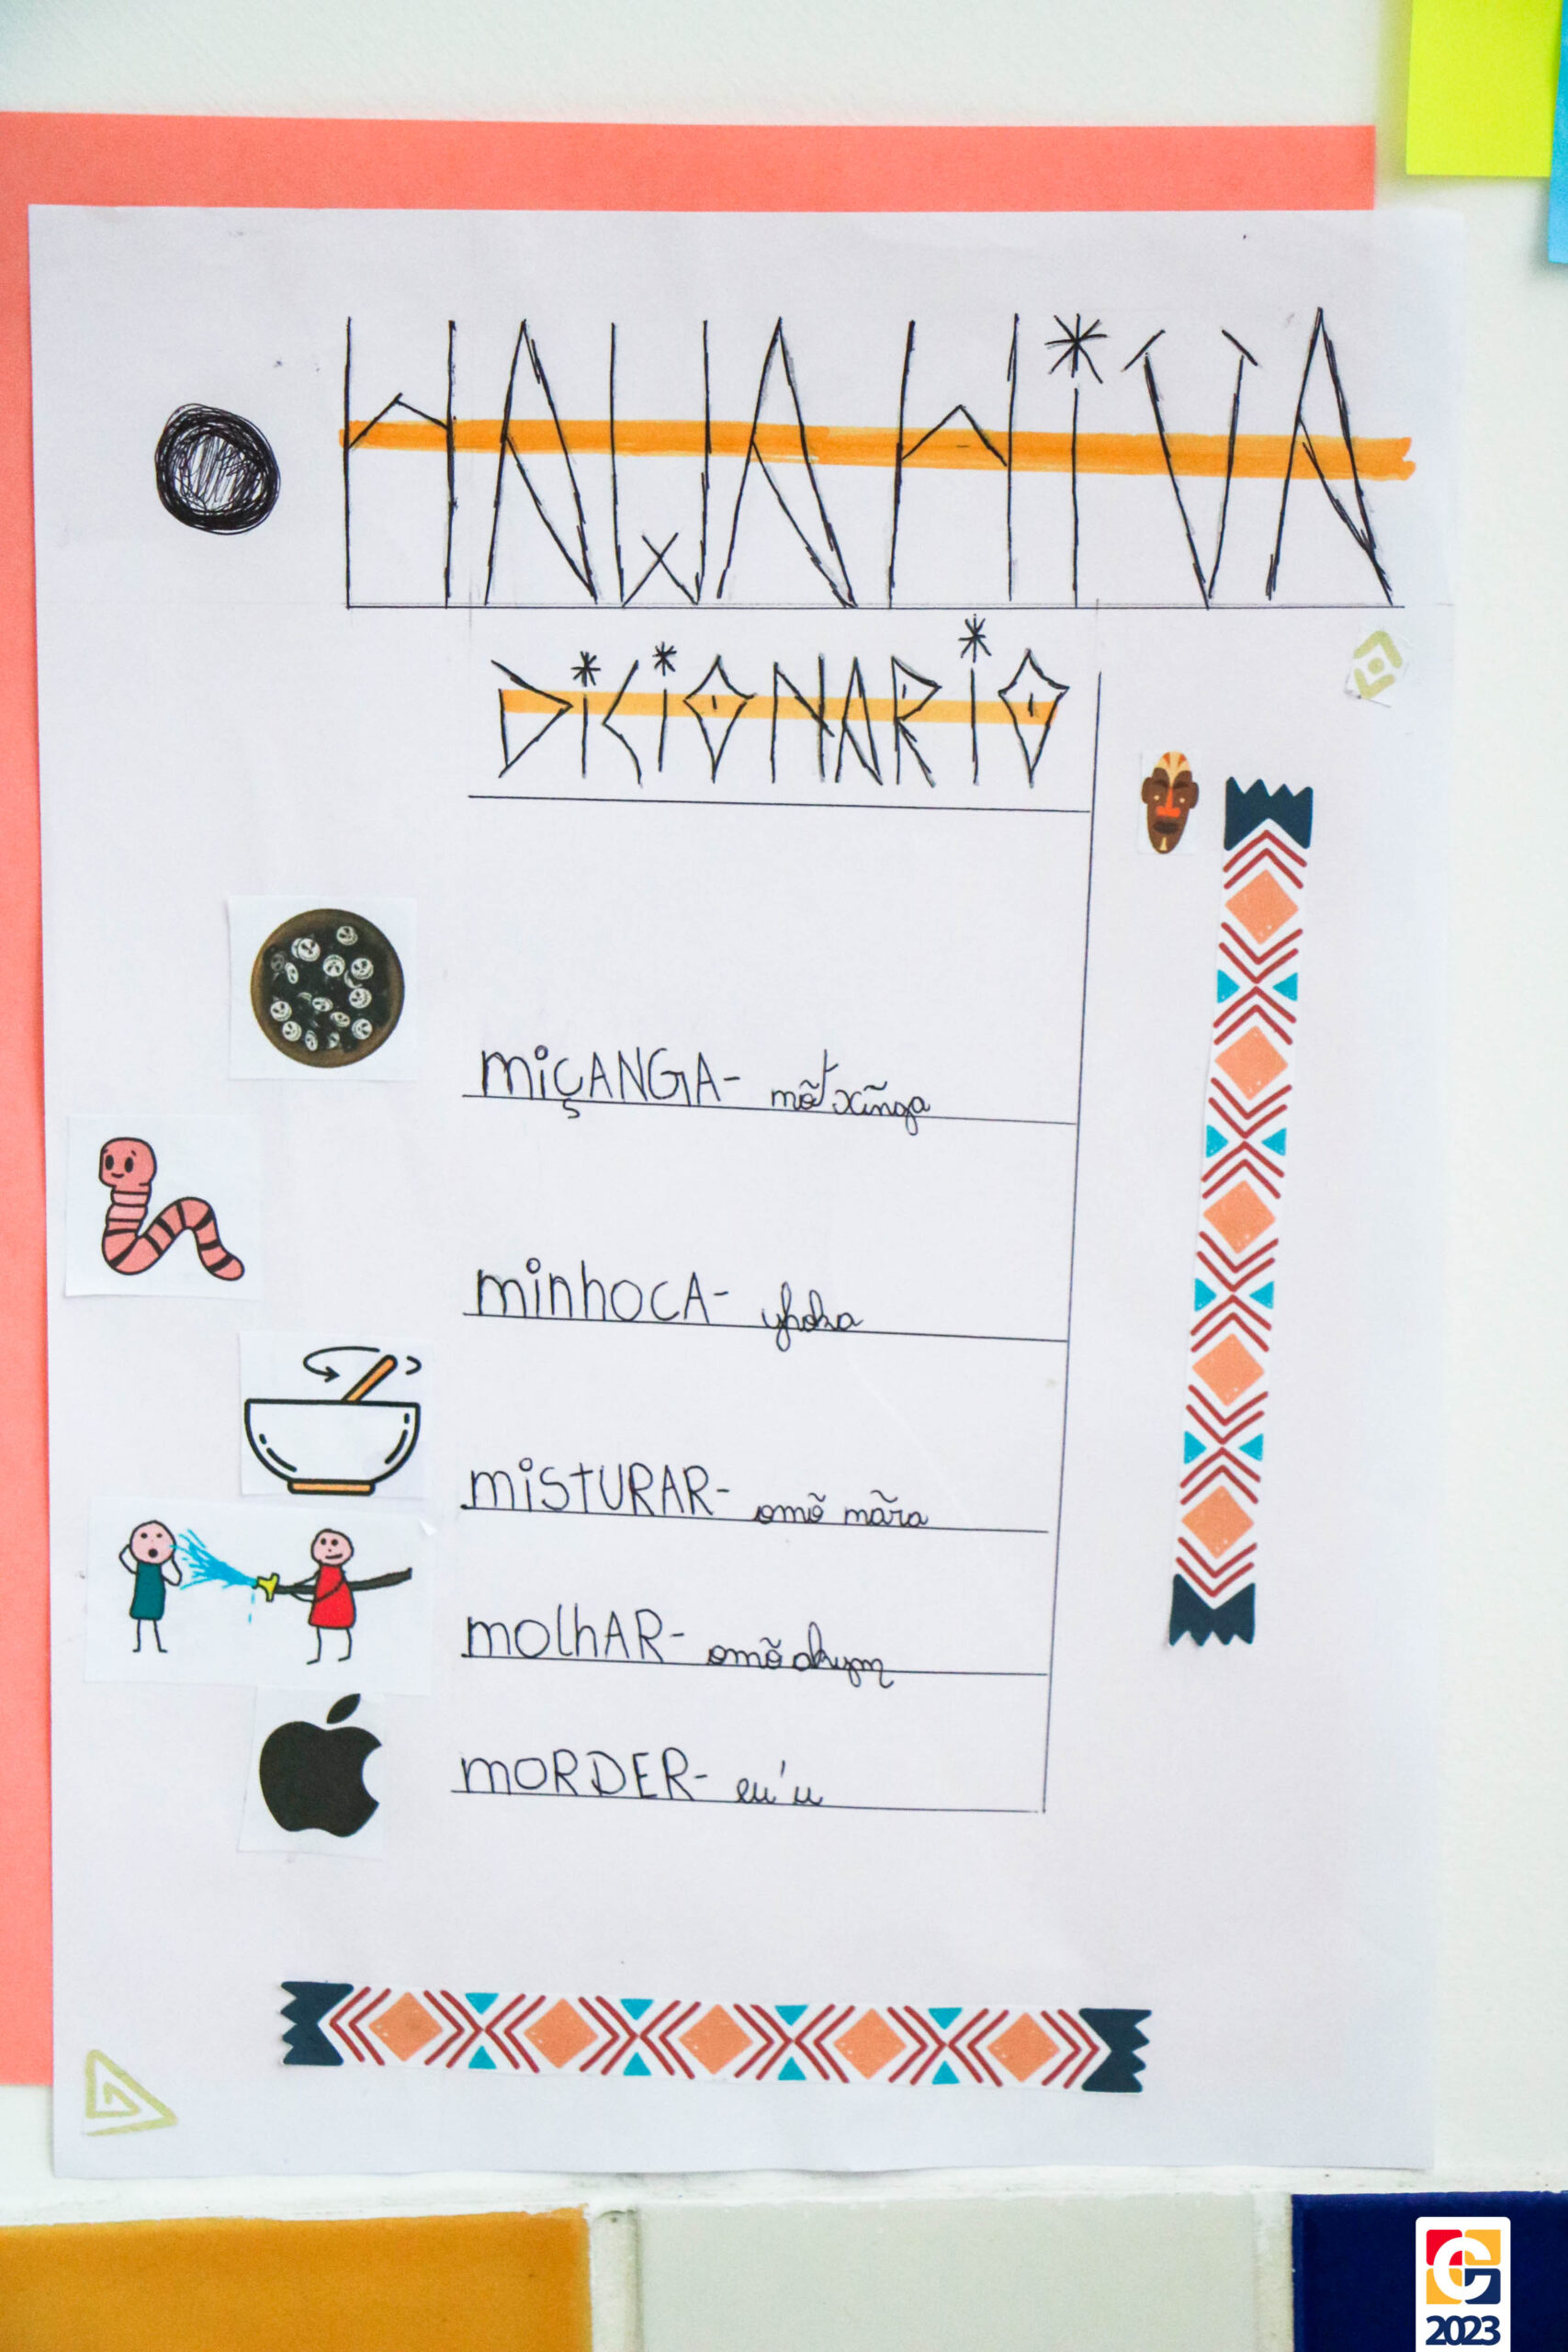 HAWAHIVA
DICIONARIO
MIÇANGA- mõtxĩnga
MINHOCA-
MISTURAR- omõ mãra
MOLHAR- omõ akym
MORDER- eu'u
2023